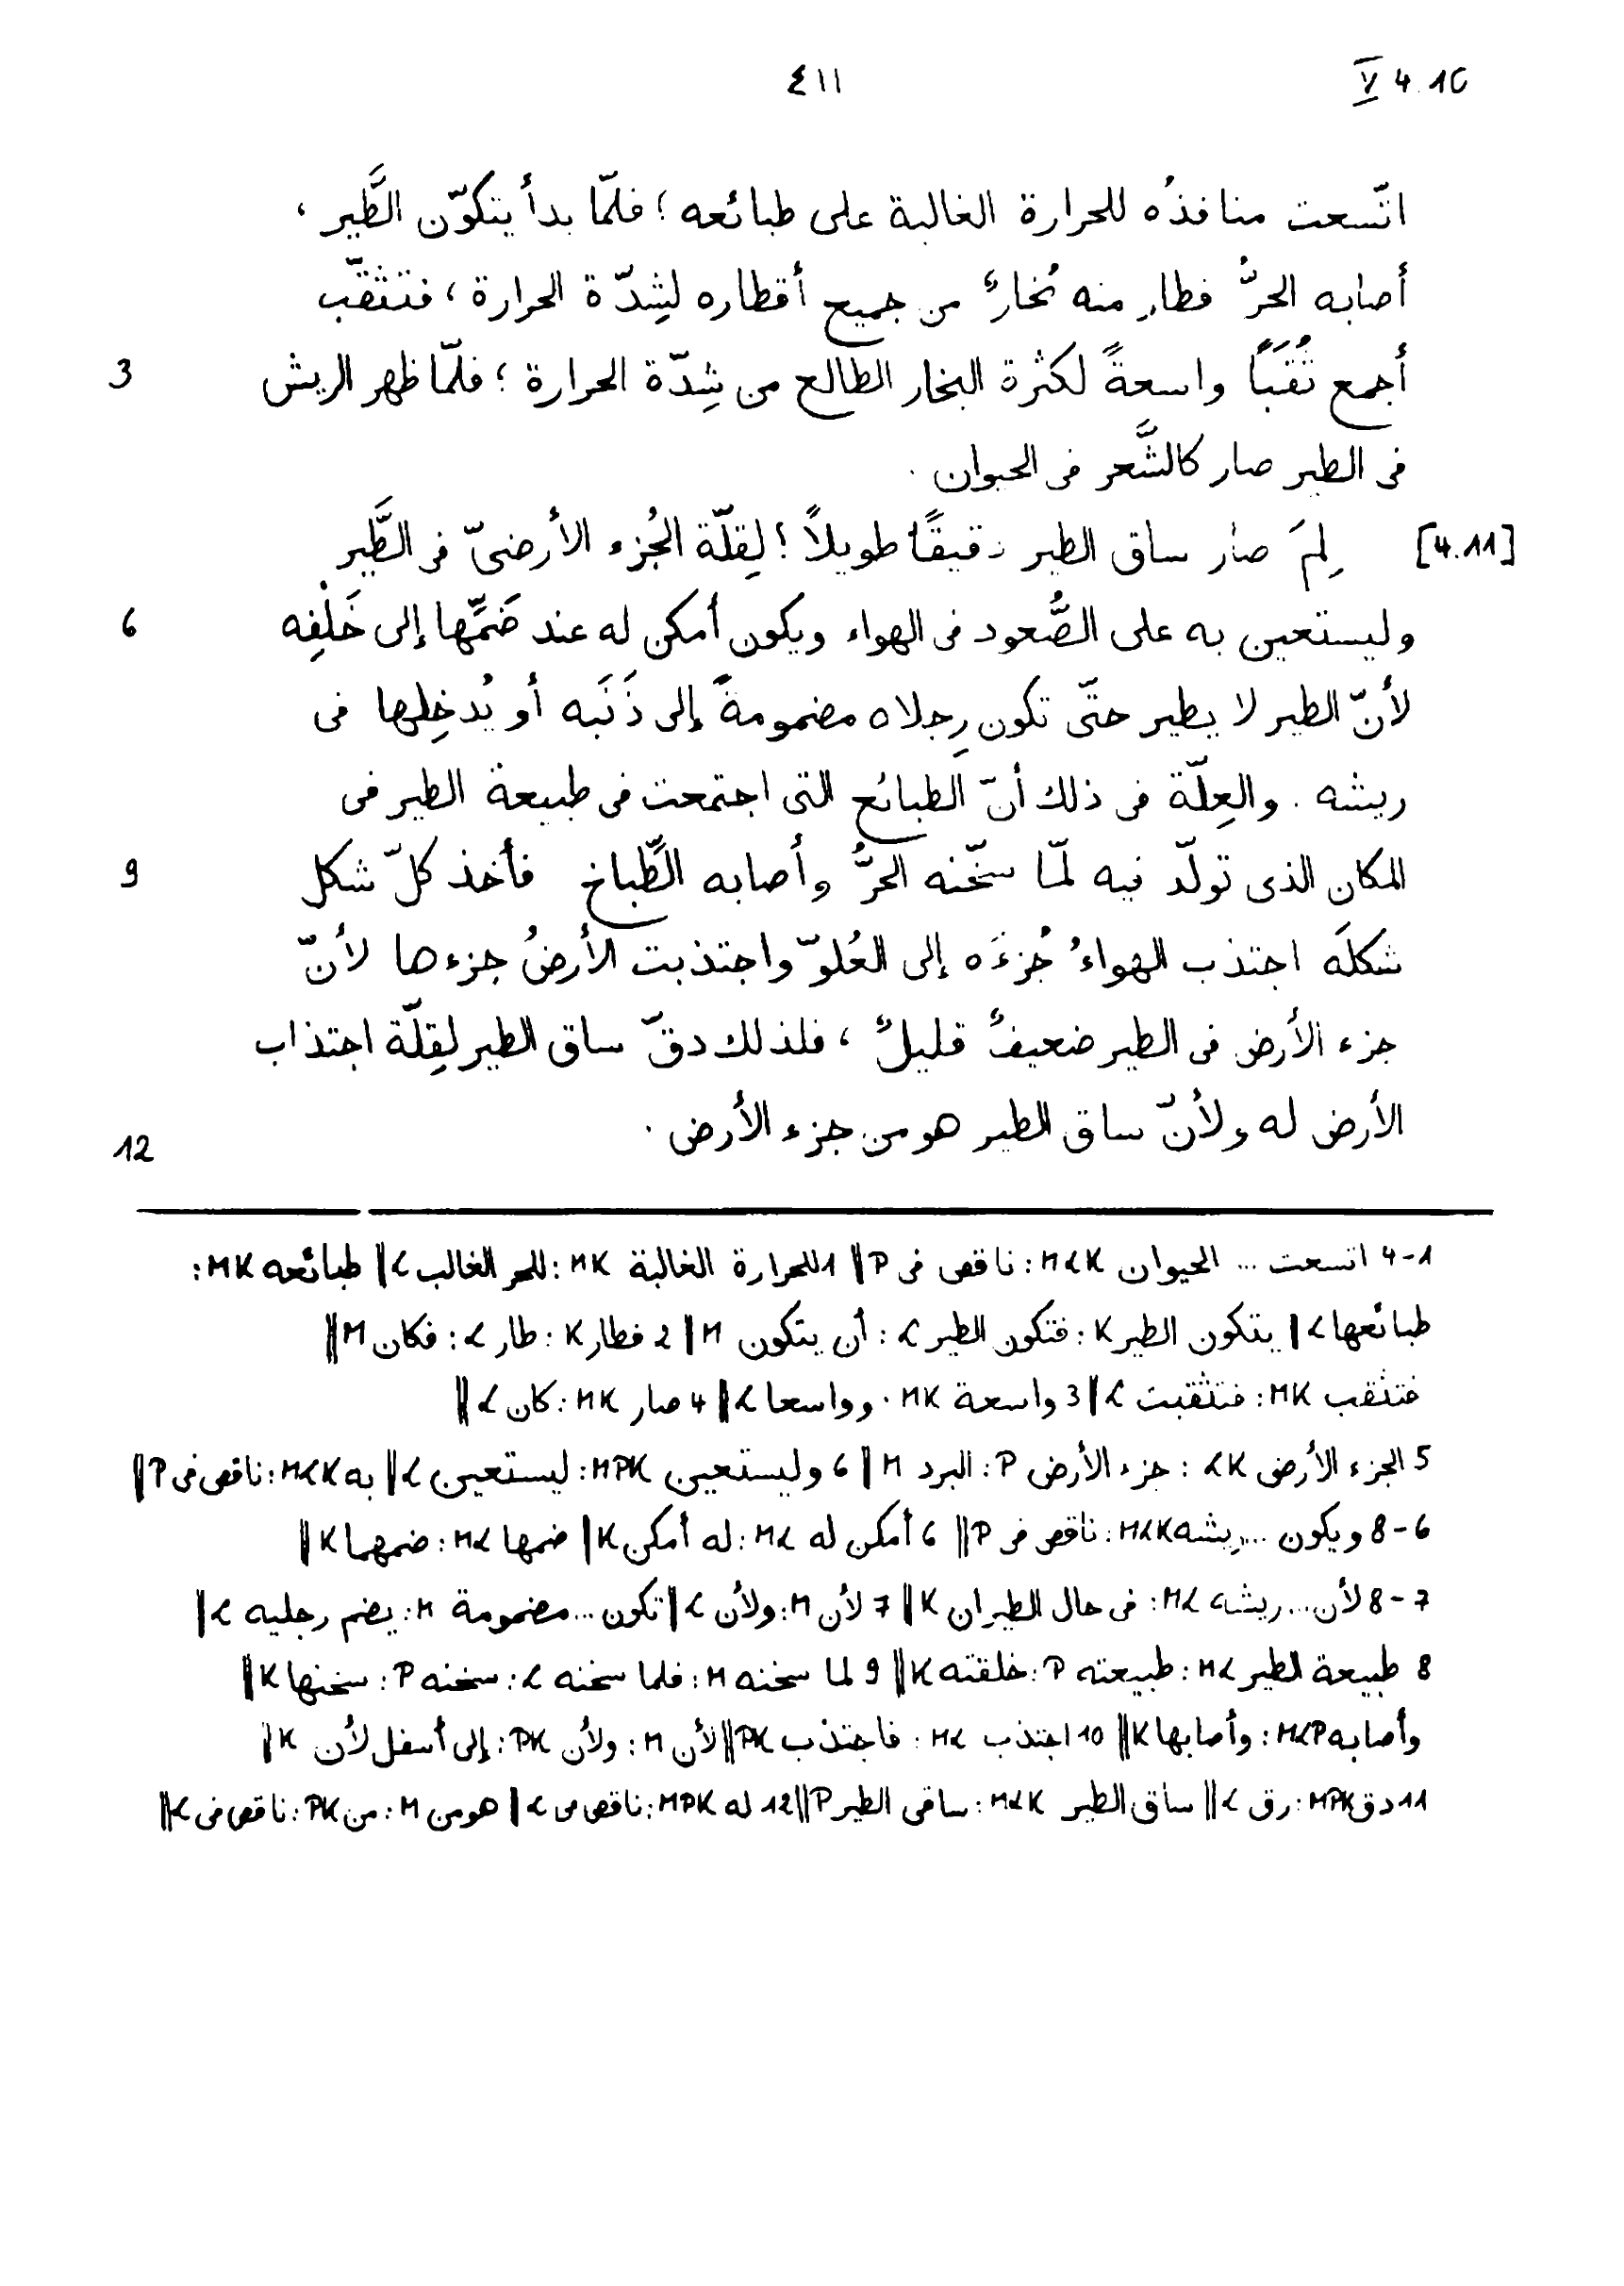 ٤١١
V 4.10
اتّسعت منافذُه للحرارة الغالبة على طبائعه؛ فلمّا بدأ يتكوّن الطَّير،
أصابه الحرُّ فطار منه بُخارٌ من جميع أقطاره لشِدّة الحرارة، فتثقّب
3 أجمع ثُقَبًا واسعةً لكثرة البخار الطالع من شِدّة الحرارة؛ فلمّا ظهر الريش
فى الطير صار كالشَّعر فى الحيوان.
[4.11] لِمَ صار ساق الطير دقيقًا طويلاً؟ لِقِلّة الجُزء الأرضىّ فى الطَّير
6 وليستعين به على الصُّعود فى الهواء ويكون أمكن له عند ضَمِّها إلى خَلْفِه
لأنّ الطير لا يطير حتّى تكون رِجلاه مضمومةً إلى ذَنَبه أو يُدخِلها فى
ريشه. والعِلّة فى ذلك أنّ الطبائع التى اجتمعت فى طبيعة الطير فى
9 المكان الذى تولّد فيه لمّا سخّنه الحرُّ وأصابه الطَّباخ فأخذ كلّ شكل
شكلَه اجتذب الهواءُ جُزءَه إلى العُلوّ واجتذبت الأرضُ جزءها لأنّ
جزء الأرض فى الطير ضعيفٌ قليلٌ، فلذلك دقّ ساق الطير لقِلّة اجتذاب
12 الأرض له ولأنّ ساق الطير هو من جزء الأرض.
1-4 اتسعت ... الحيوان MLK: ناقص فى P || 1 للحرارة الغالبة MK: للحر الغالب L || طبائعه MK:
طبائعها L | يتكون الطير K: فتكون الطير L: أن يتكون M || 2 فطار K: طار L: فكان M ||
فتثقب MK: فتثقبت L || 3 واسعة MK: وواسعا L || 4 صار MK: كان L ||
5 الجزء الأرضى LK: جزء الأرض P: البرد M || 6 وليستعين MPK: ليستعين L || به MLK: ناقص فى P ||
6-8 ويكون ... ريشه MLK: ناقص فى P || 6 أمكن له ML: له أمكن K | ضمها ML: ضمهما K ||
7-8 لأن ... ريشه ML: فى حال الطيران K || 7 لأن M: ولأن L | تكون ... مضمومة M: يضم رجليه L ||
8 طبيعة الطير ML: طبيعته P: خلقته K || 9 لما سخنه M: فلما سخنه L: سخنه P: سخنها K ||
وأصابه MLP: وأصابها K || 10 اجتذب ML: فاجتذب PK || لأن M: ولأن PK: إلى أسفل لأن K ||
11 دق MPK: رق L || ساق الطير MLK: ساقى الطير P || 12 له MPK: ناقص فى L | هو من M: من PK: ناقص فى L ||